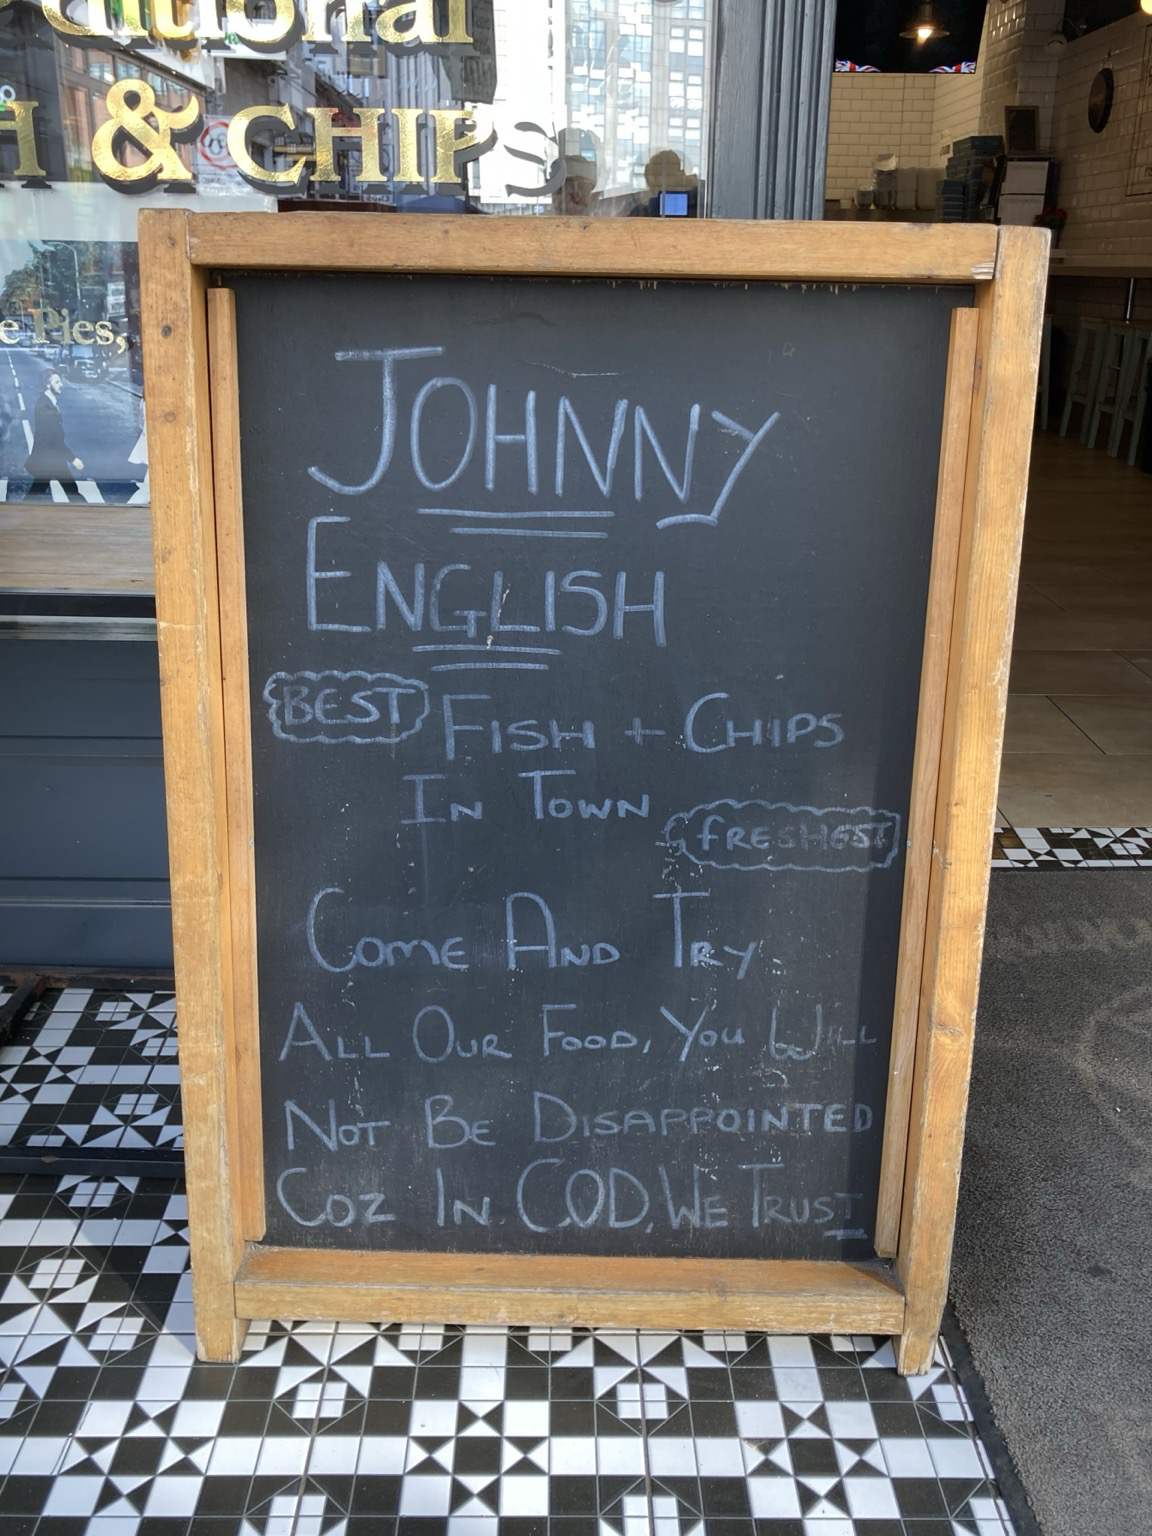 ditional
H & CHIPS
e Pies,
JOHNNY
ENGLISH
BEST FISH + CHIPS
IN TOWN
fRESHEST
COME AND TRY
ALL OUR FOOD, YOU WILL
NOT BE DISAPPOINTED
COZ IN COD, WE TRUST